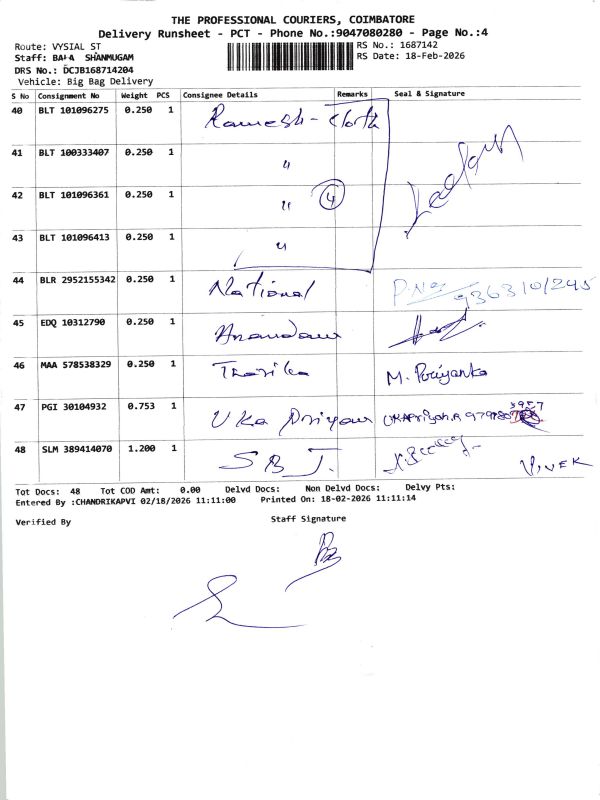 THE PROFESSIONAL COURIERS, COIMBATORE
Delivery Runsheet - PCT - Phone No.:9047080280 - Page No.:4
Route: VYSIAL ST
RS No.: 1687142
Staff: BALA SHANMUGAM
RS Date: 18-Feb-2026
DRS No.: DCJB168714204
Vehicle: Big Bag Delivery
S No Consignment No Weight PCS Consignee Details Remarks Seal & Signature
40 BLT 101096275 0.250 1 Ramesh - Cloth
41 BLT 100333407 0.250 1 "
42 BLT 101096361 0.250 1 " 4
43 BLT 101096413 0.250 1 "
44 BLR 2952155342 0.250 1 National P.No: 936310/245
45 EDQ 10312790 0.250 1
46 MAA 578538329 0.250 1 Tharika M. Poriyanka
47 PGI 30104932 0.753 1 Uka Priyan
48 SLM 389414070 1.200 1 S B J. VIVEK
Tot Docs: 48 Tot COD Amt: 0.00 Delvd Docs: Non Delvd Docs: Delvy Pts:
Entered By :CHANDRIKAPVI 02/18/2026 11:11:00 Printed On: 18-02-2026 11:11:14
Verified By Staff Signature